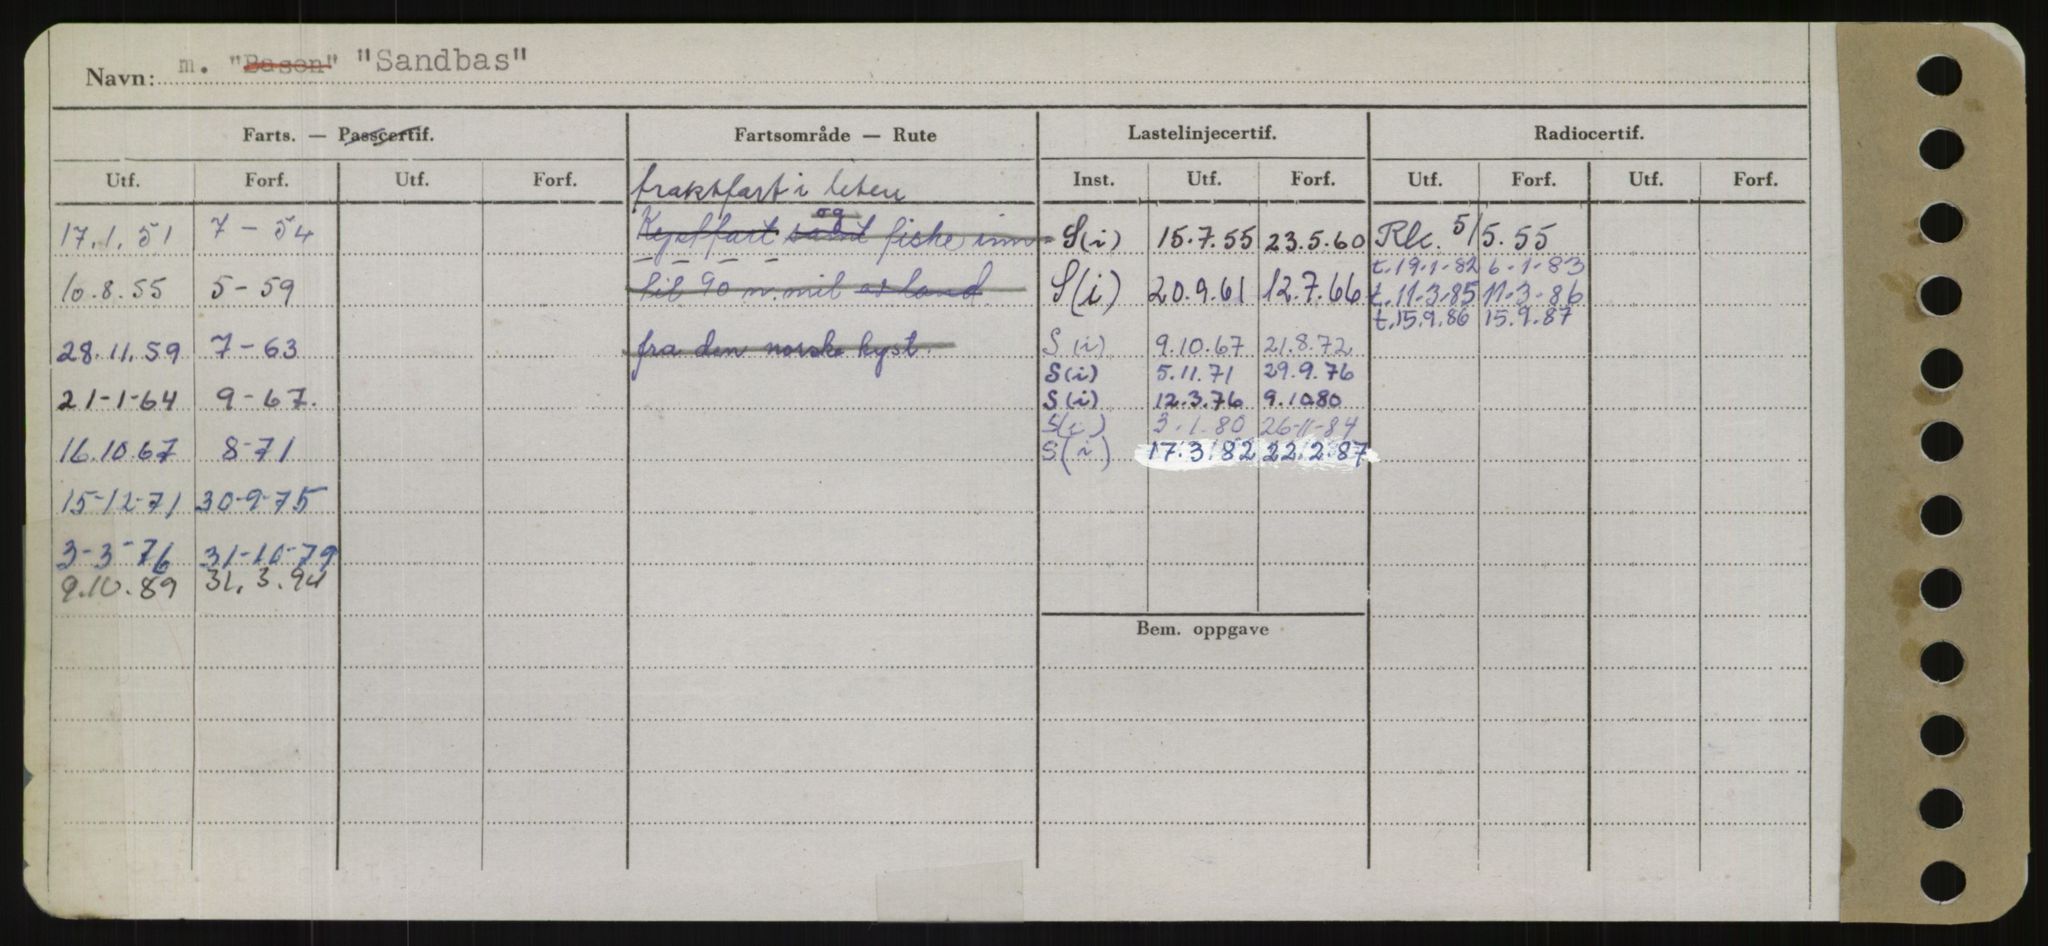 Navn: m. "Bason" "Sandbas"
Farts. — Passcertif. Fartsområde — Rute Lastelinjecertif. Radiocertif.
Utf. Forf. Utf. Forf. Inst. Utf. Forf. Utf. Forf. Utf. Forf.
fraktfart i leten
17.1.51 7-54 Kystfart samt og fiske inn- S(i) 15.7.55 23.5.60 Rk. 5/5.55
t.19-1-82 6-1-83
10.8.55 5-59 til 90 n.mil av land S(i) 20.9.61 12.7.66 t.11-3-85 11-3-86
t.15.9.86 15.9.87
28.11.59 7-63 fra den norske kyst. S(i) 9.10.67 21.8.72
S(i) 5.11.71 29.9.76
21-1-64 9-67. S(i) 12.3.76 9.10.80
S(i) 3.1.80 26-11-84
16.10.67 8-71 S(i) 17.3.82 22.2.87
15-12-71 30-9-75
3-3-76 31-10-79
9.10.89 31.3.94
Bem. oppgave